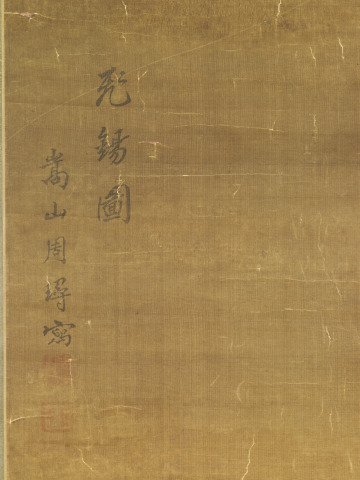 飛錫圖
嵩山周璕寫